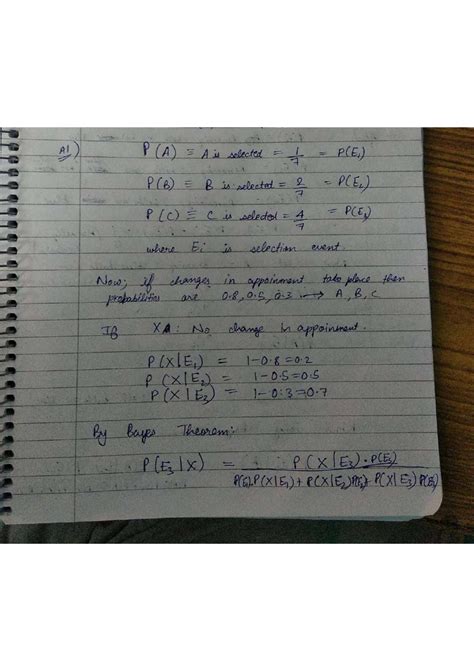 A1)
P(A) ≡ A is selected = 1/7 = P(E₁)
P(B) ≡ B is selected = 2/7 = P(E₂)
P(C) ≡ C is selected = 4/7 = P(E₃)
where Ei is selection event
Now, if changes in appoinment take place then
probabilities are 0.8, 0.5, 0.3 → A, B, C
If X: No change in appoinment.
P(X|E₁) = 1-0.8=0.2
P(X|E₂) = 1-0.5=0.5
P(X|E₃) = 1-0.3=0.7
By Bayes Theorem:
P(E₃|X) = P(X|E₃)·P(E₃) / P(E₁)·P(X|E₁)+P(X|E₂)P(E₂)+P(X|E₃)P(E₃)